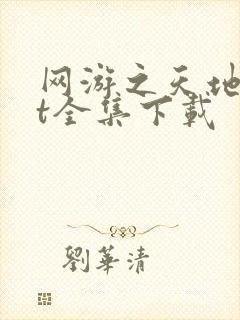 网游之天地
t全集下载
劉華清